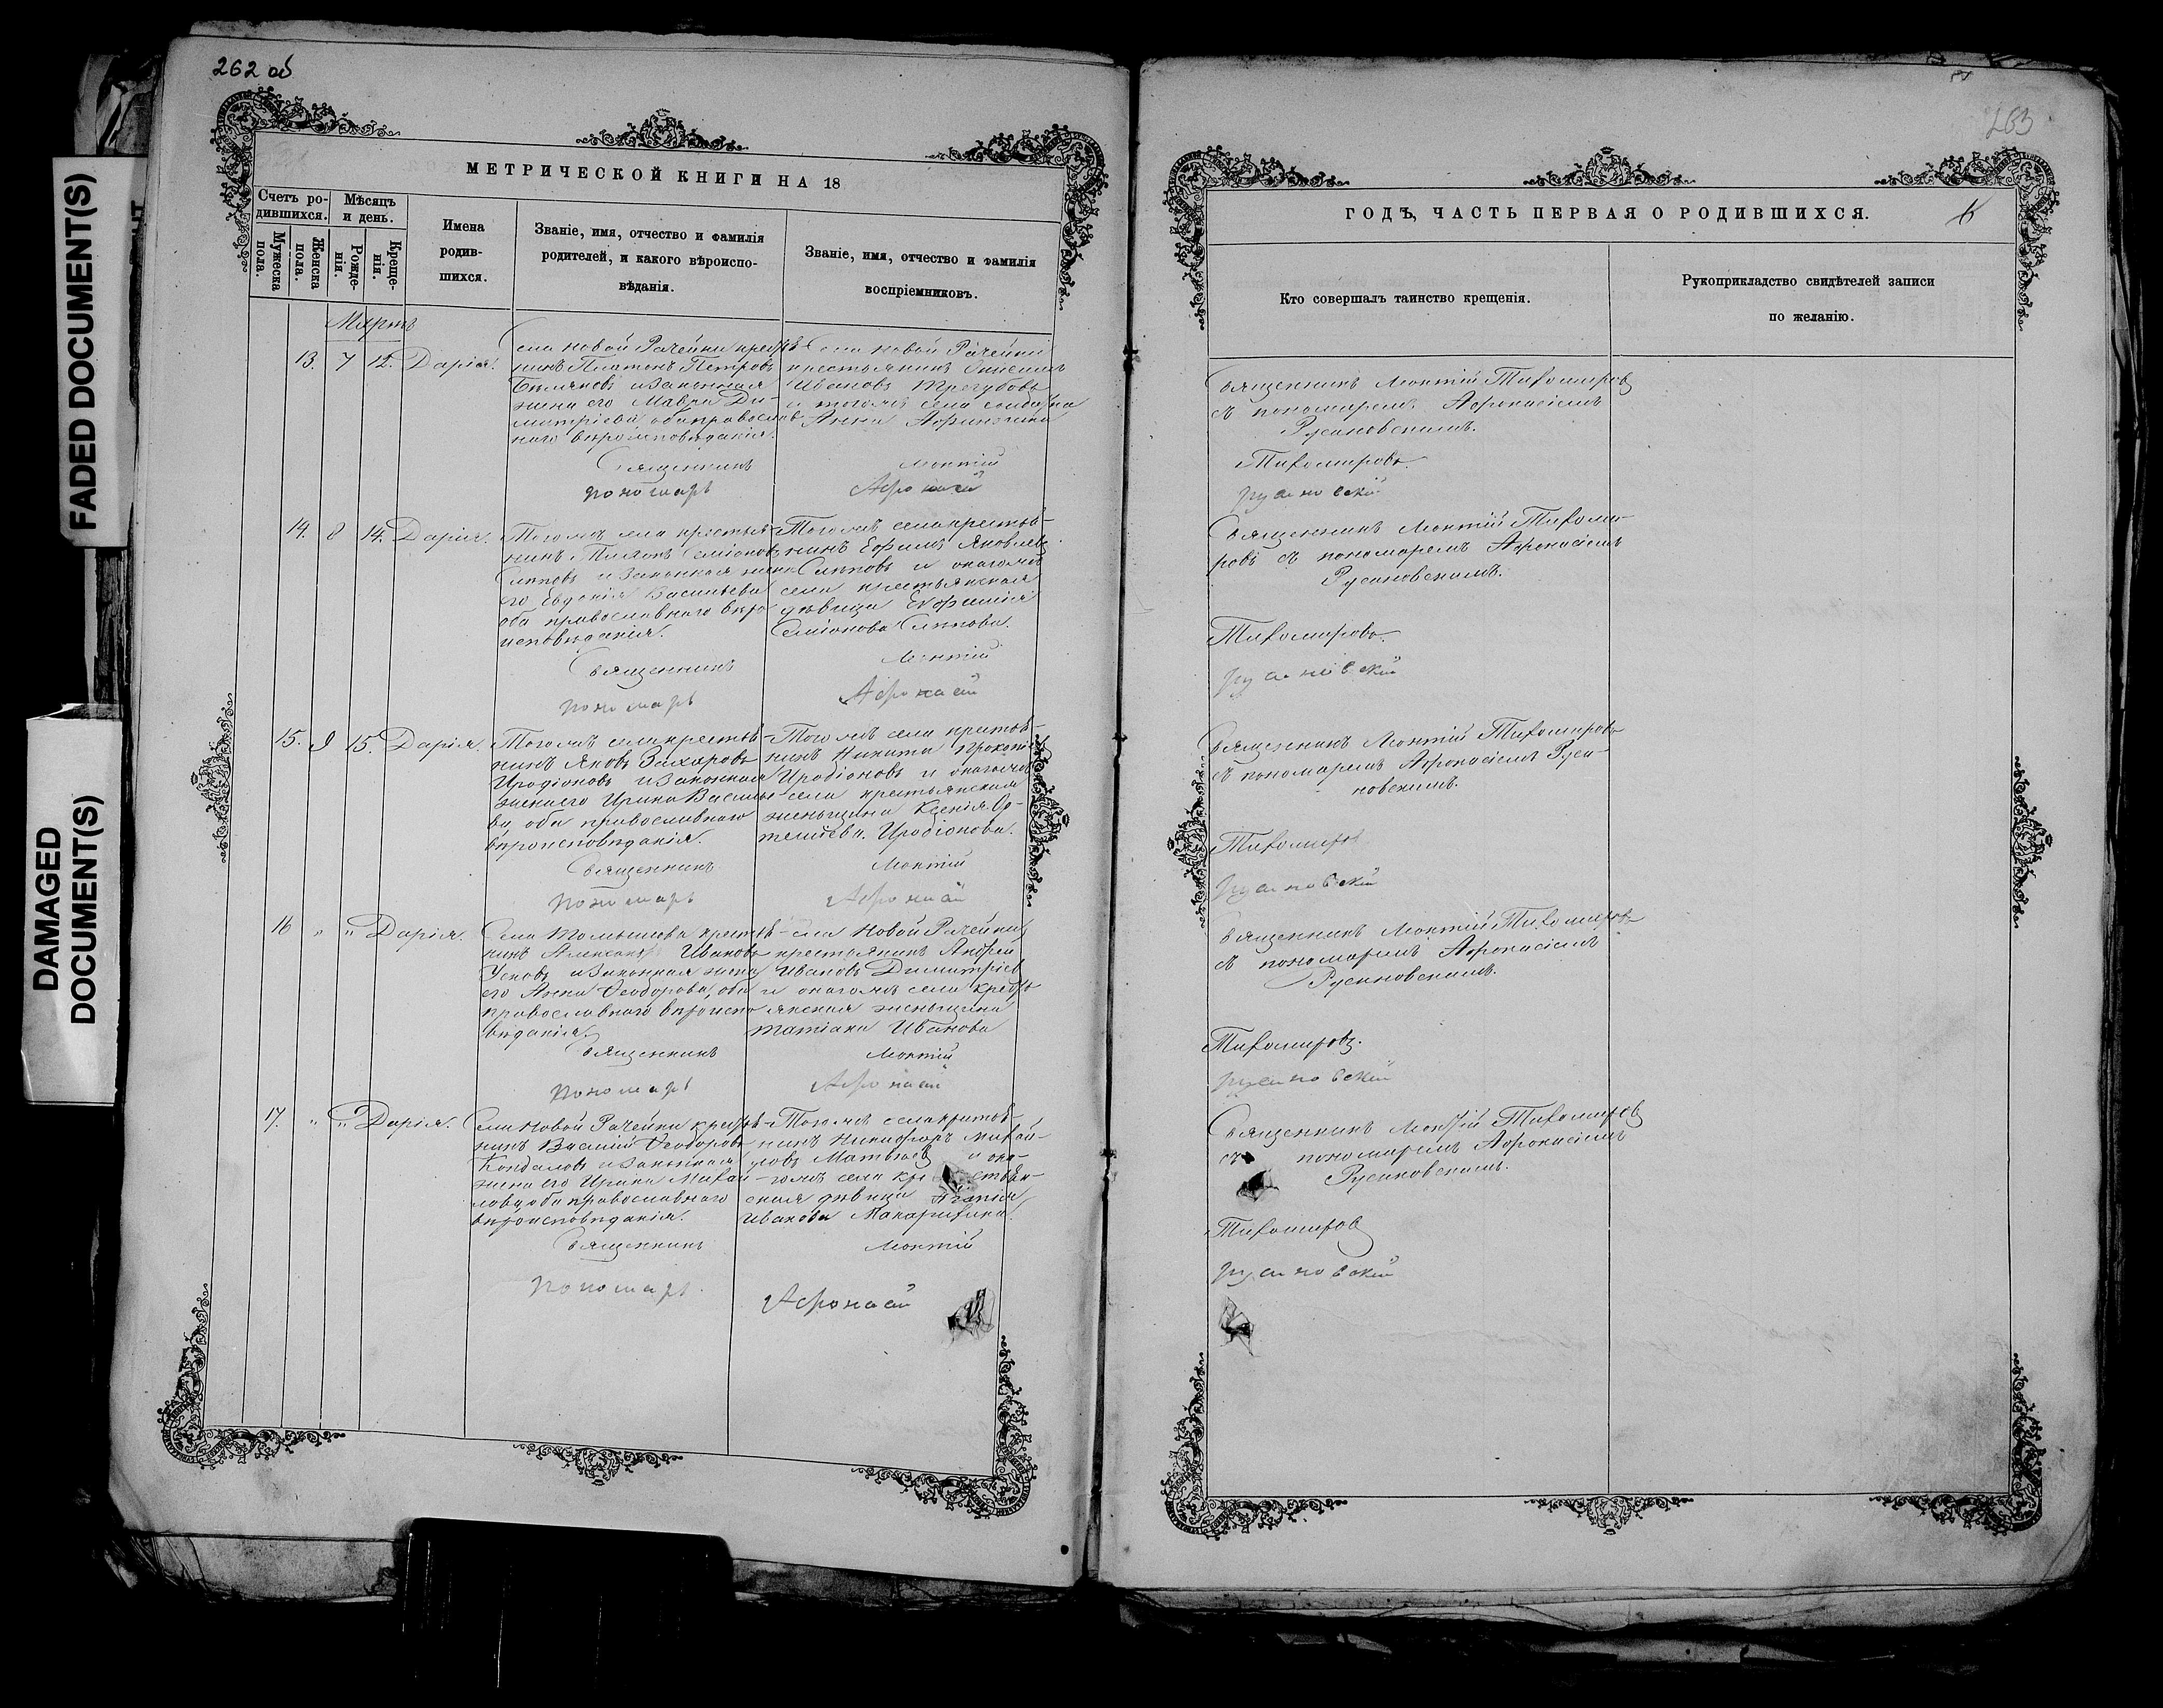 262 об
МЕТРИЧЕСКОЙ КНИГИ НА 18
Счетъ ро-
дившихся.
Мужеска
пола.
Женска
пола.
Мѣсяцъ
и день.
Рожде-
нія.
Креще-
нія.
Имена
родив-
шихся.
Званіе, имя, отчество и фамилія
родителей, и какого вѣроиспо-
вѣданія.
Званіе, имя, отчество и фамилія
воспріемниковъ.
Мартъ
13. 7 12. Дарія.
Села Новой Рачейки крестья-
нинъ Платонъ Петровъ
и законная
жена его Мавра Ди-
митріева, оба православ-
наго вѣроисповѣданія.
Села Новой Рачейки
крестьянинъ
Ивановъ Трегубовъ
и тогоже села
Анна
Священникъ Монтій
пономарь Афонасій
14. 8 14. Дарія.
Тогоже села крестья-
нинъ Семіоновъ
и законная жена
его Евдокія Васильева
оба православнаго вѣро-
исповѣданія.
Тогоже села крестья-
нинъ Ефимъ Яковлевъ
и онагоже
села крестьянская
дѣвица Евфимія
Семіонова
Священникъ Монтій
пономарь Афонасій
15. 9 15. Дарія.
Тогоже села крестья-
нинъ Яковъ Захаровъ
Иродіоновъ и законная
жена его Ирина Василье-
ва, оба православнаго
вѣроисповѣданія.
Тогоже села крестья-
нинъ Никита Прокопіевъ
Иродіоновъ и онагоже
села крестьянская
женьщина Ксенія
Иродіонова.
Священникъ Монтій
пономарь Афонасій
16 " " Дарія.
Села Томышева крестья-
нинъ Александръ Ивановъ
Усковъ и законная жена
его Анна Ѳеодорова, оба
православнаго вѣроиспо-
вѣданія.
Села Новой Рачейки
крестьянинъ Андрей
Ивановъ Димитріевъ
и онагоже села кресть-
янская женьщина
Татіана Иванова
Священникъ Монтій
пономарь Афонасій
17. " " Дарія.
Села Новой Рачейки кресть-
нинъ Василій Ѳеодоровъ
и законная
жена его Ирина Михай-
лова, оба православнаго
вѣроисповѣданія.
Тогоже села крестья-
нинъ Никифоръ Михай-
ловъ Матвѣевъ и она-
гоже села крестьян-
ская дѣвица
Иванова
Священникъ Монтій
пономарь.
Афонасій
263
ГОДЪ, ЧАСТЬ ПЕРВАЯ О РОДИВШИХСЯ.
Кто совершалъ таинство крещенія.
Рукоприкладство свидѣтелей записи
по желанію.
Священникъ Монтій Тихомировъ
съ пономаремъ Афонасіемъ
Русановскимъ.
Тихомировъ.
Русановскій
Священникъ Монтій Тихоми-
ровъ съ пономаремъ Афонасіемъ
Русановскимъ.
Тихомировъ.
Русановскій
Священникъ Монтій Тихомировъ
съ пономаремъ Афонасіемъ Руса-
новскимъ.
Тихомировъ
Русановскій
Священникъ Монтій Тихомировъ
съ пономаремъ Афонасіемъ
Русановскимъ.
Тихомировъ.
Русановскій
Священникъ Монтій Тихомировъ
съ пономаремъ Афонасіемъ
Русановскимъ.
Тихомировъ
Русановскій
FADED DOCUMENT(S)
DAMAGED
DOCUMENT(S)